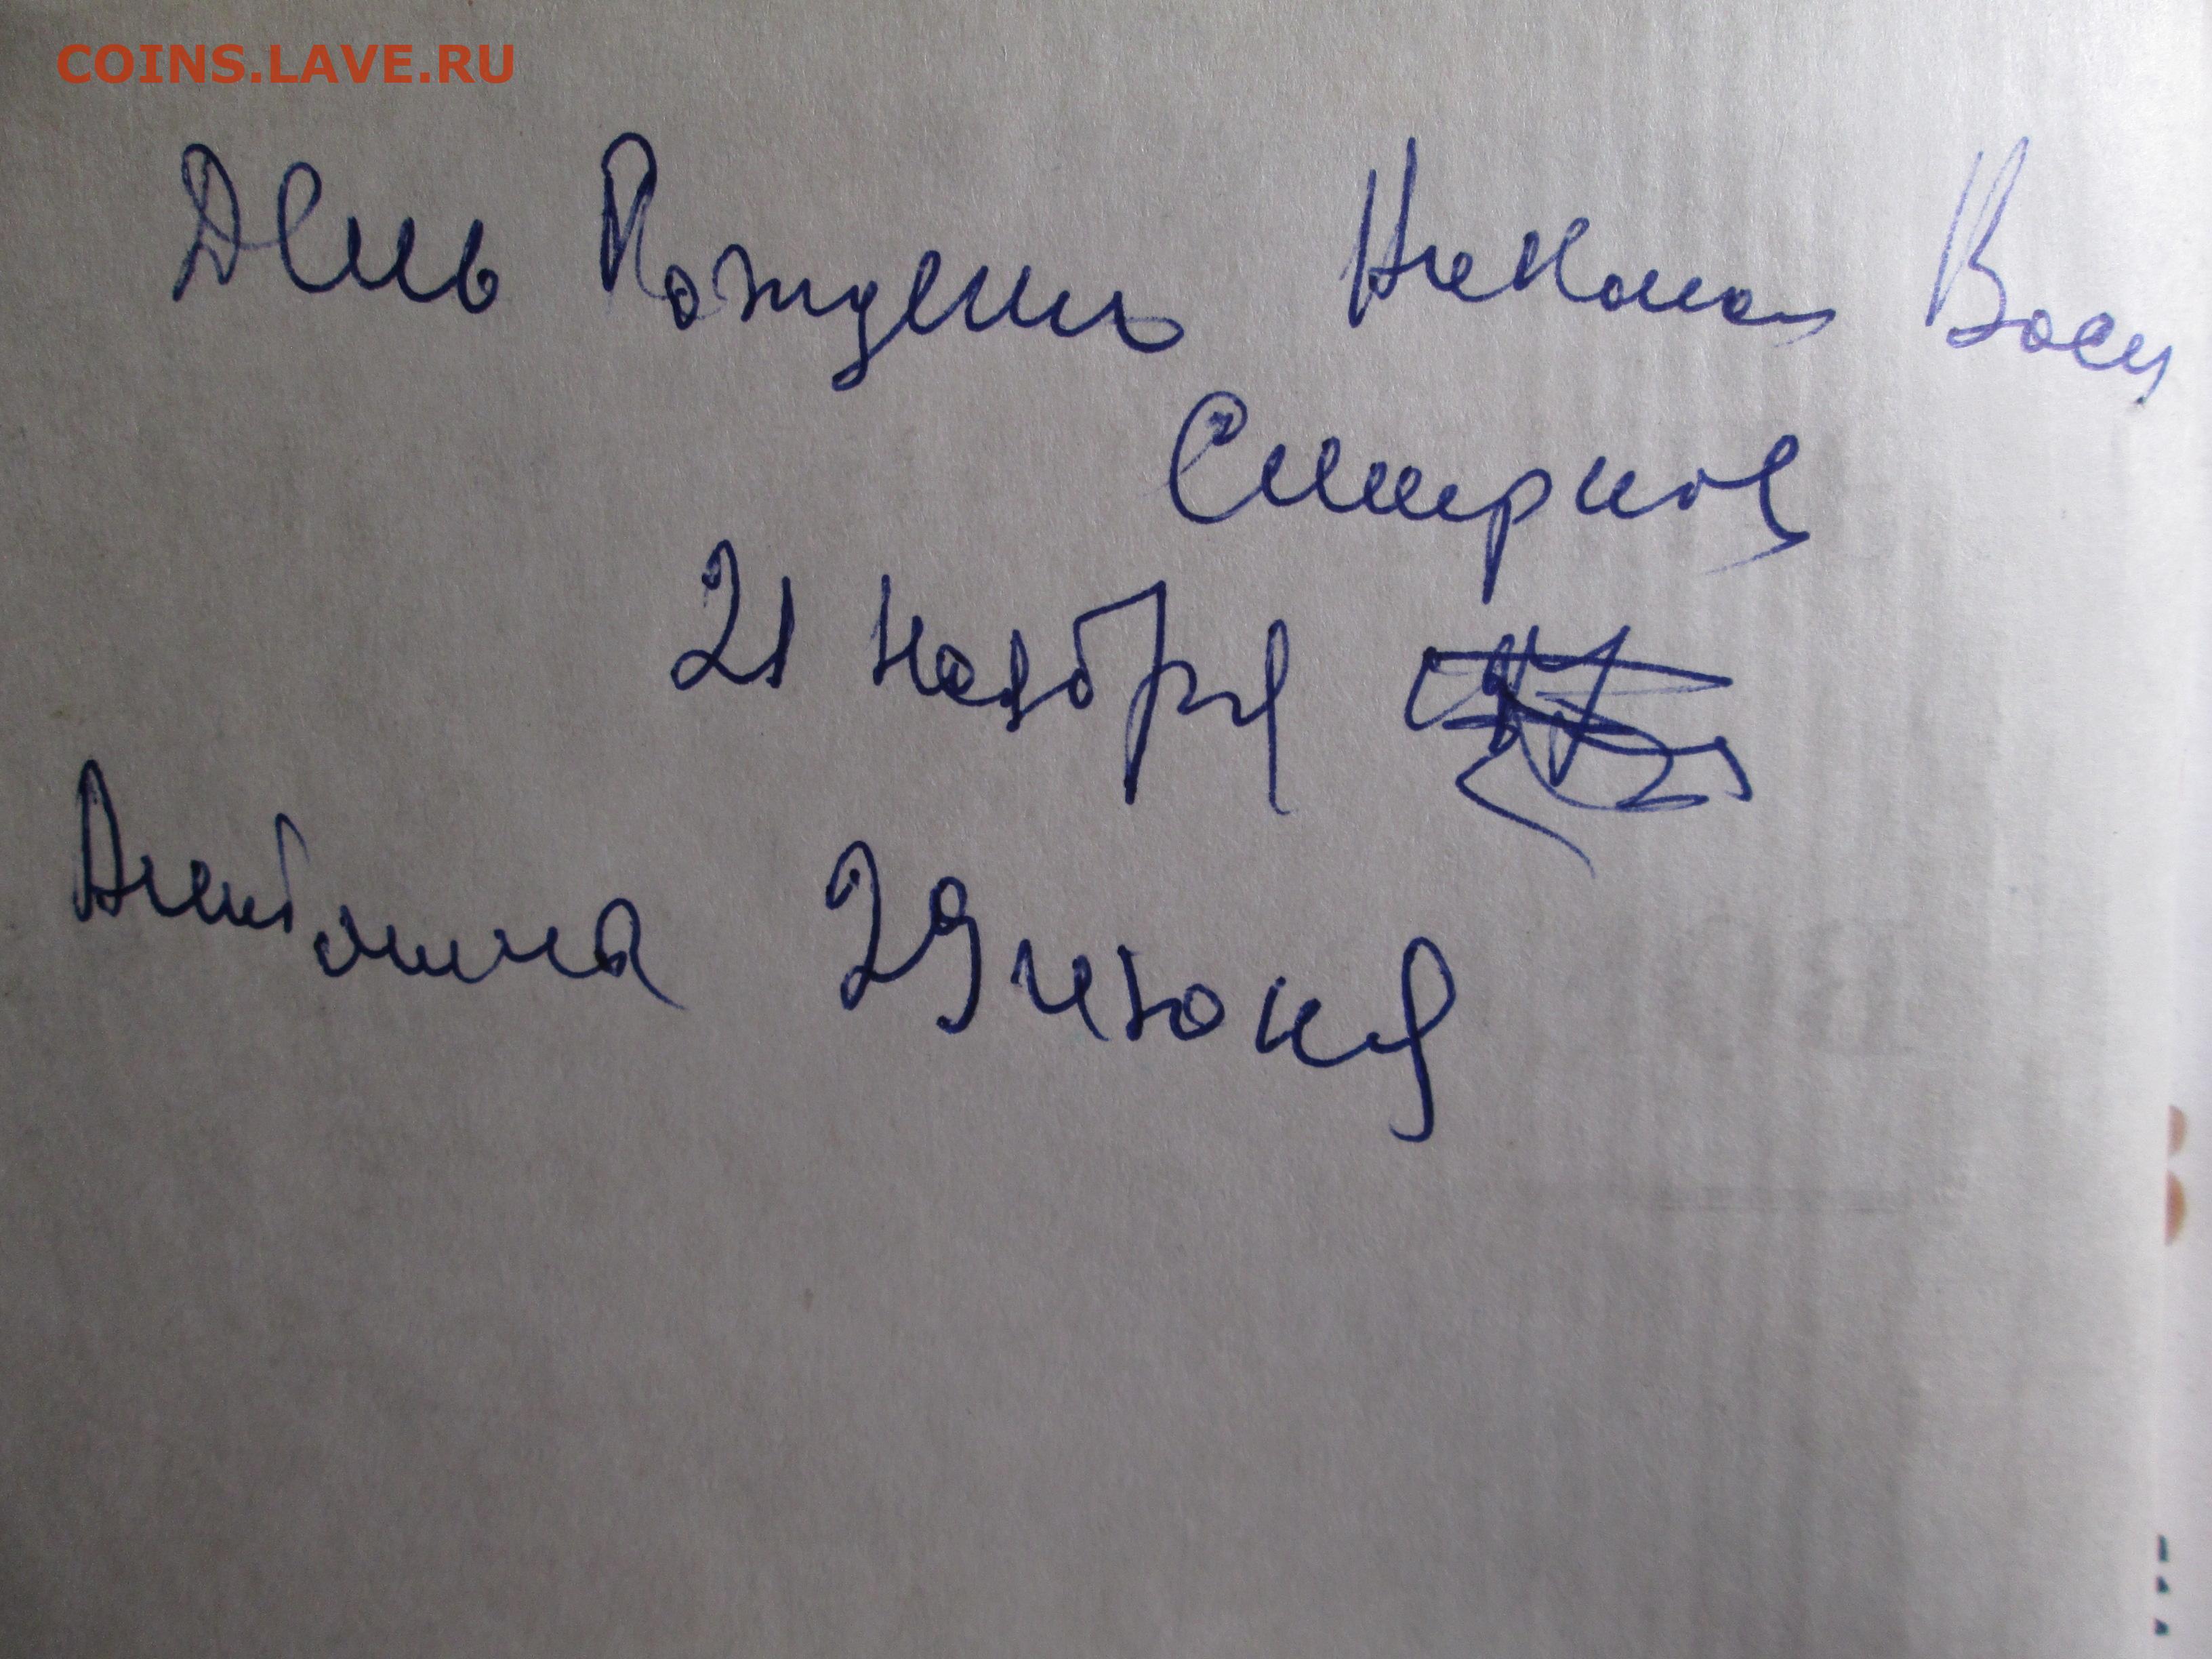 COINS.LAVE.RU
День Рожденья Николая Васи
Смирнов
21 ноября
Антонина 29 июня